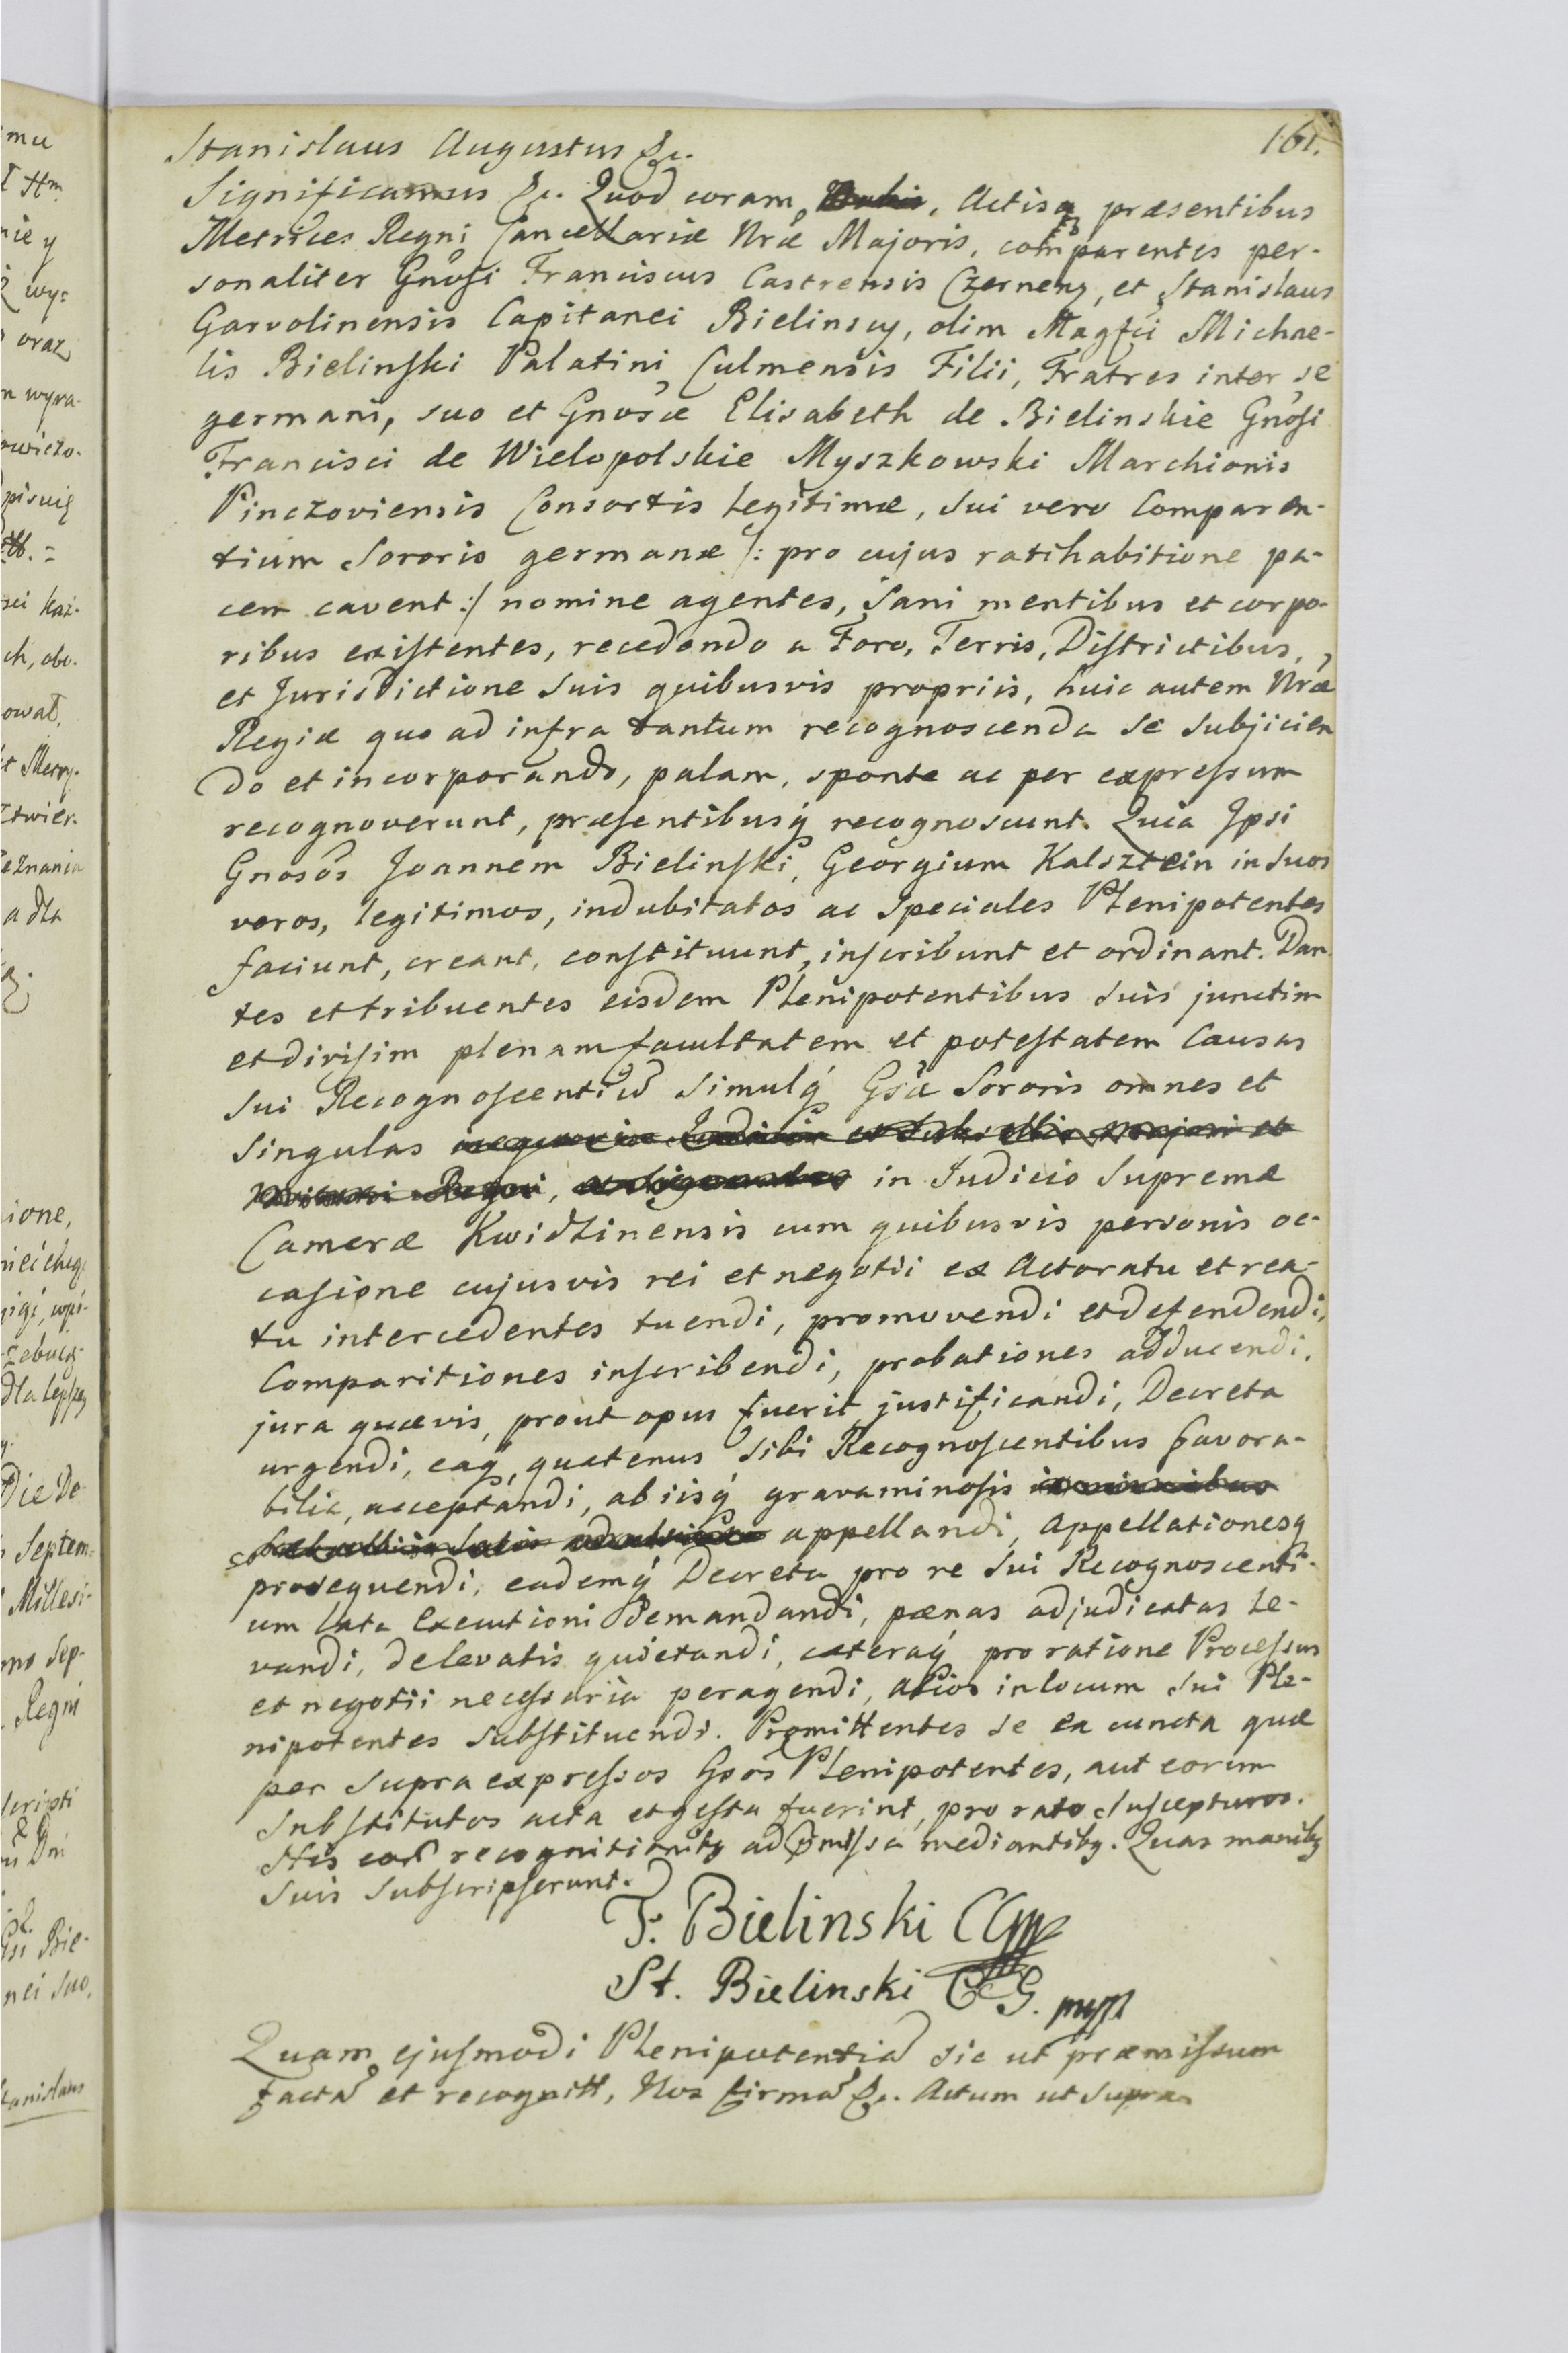 161.
Stanislaus Augustus &c.
Significamus &c. Quod coram, Actisq præsentibus
Metrices Regni Cancellariæ Nræ Majoris, comparentes per-
sonaliter Gnosi Franciscus Castrensis Czernen, et Stanislaus
Garvolinensis Capitanei Bielinscy, olim Magfci Michae-
lis Bielinski Palatini Culmensis Filii, Fratres inter se
germani, suo et Gnosæ Elisabeth de Bielinskie Gnosi
Francisci de Wielopolskie Myszkowski Marchionis
Pinczoviensis Consortis legitimæ, sui vero Comparen-
tium Sororis germanæ /: pro cujus ratihabitione pa-
cem cavent :/ nomine agentes, Sani mentibus et corpo-
ribus existentes, recedendo a Foro, Terris, Districtibus,
et Jurisdictione suis quibusvis propriis, huic autem Nræ
Regiæ quo ad infra tantum recognoscenda se subjicien
do et incorporando, palam, sponte ac per expressum
recognoverunt, præsentibusq recognoscunt. Quia Ipsi
Gnosos Joannem Bielinski, Georgium Kalsztein in suos
veros, legitimos, indubitatos ac speciales Plenipotentes
faciunt, creant, constituunt, inscribunt et ordinant. Dan
tes et tribuentes eisdem Plenipotentibus suis junctim
et divisim plenam facultatem et potestatem Causas
sui Recognoscentiu simulq Gsæ Sororis omnes et
singulas
in Judicio Supremæ
Cameræ Kwidzinensis cum quibusvis personis oc-
casione cujusvis rei et negotii ex Actoratu et rea-
tu intercedentes tuendi, promovendi et defendendi,
Comparitiones inscribendi, probationes adducendi,
jura quævis, prout opus fuerit, justificandi, Decreta
urgendi, eaq, quatenus sibi Recognoscentibus favora-
bilia, acceptandi, ab iisq gravaminosis
appellandi, Appellationesq
prosequendi, eademq Decreta pro re sui Recognoscenti-
um lata Executioni demandandi, pænas adjudicatas le-
vandi, de levatis quietandi, cæteraq pro ratione Processus
et negotii necessaria peragendi, alios in locum sui Ple-
nipotentes substituendi. Promittentes se ea cuncta quæ
per supra expressos Gsos Plenipotentes, aut eorum
substitutos acta et gesta fuerint, pro rato suscepturos.
suis subscripserunt.
F. Bielinski
St. Bielinski C G. mpp
Quam ejusmodi Plenipotentia sic ut præmissum
facta et recognitt, Nos firma &c. Actum ut supra